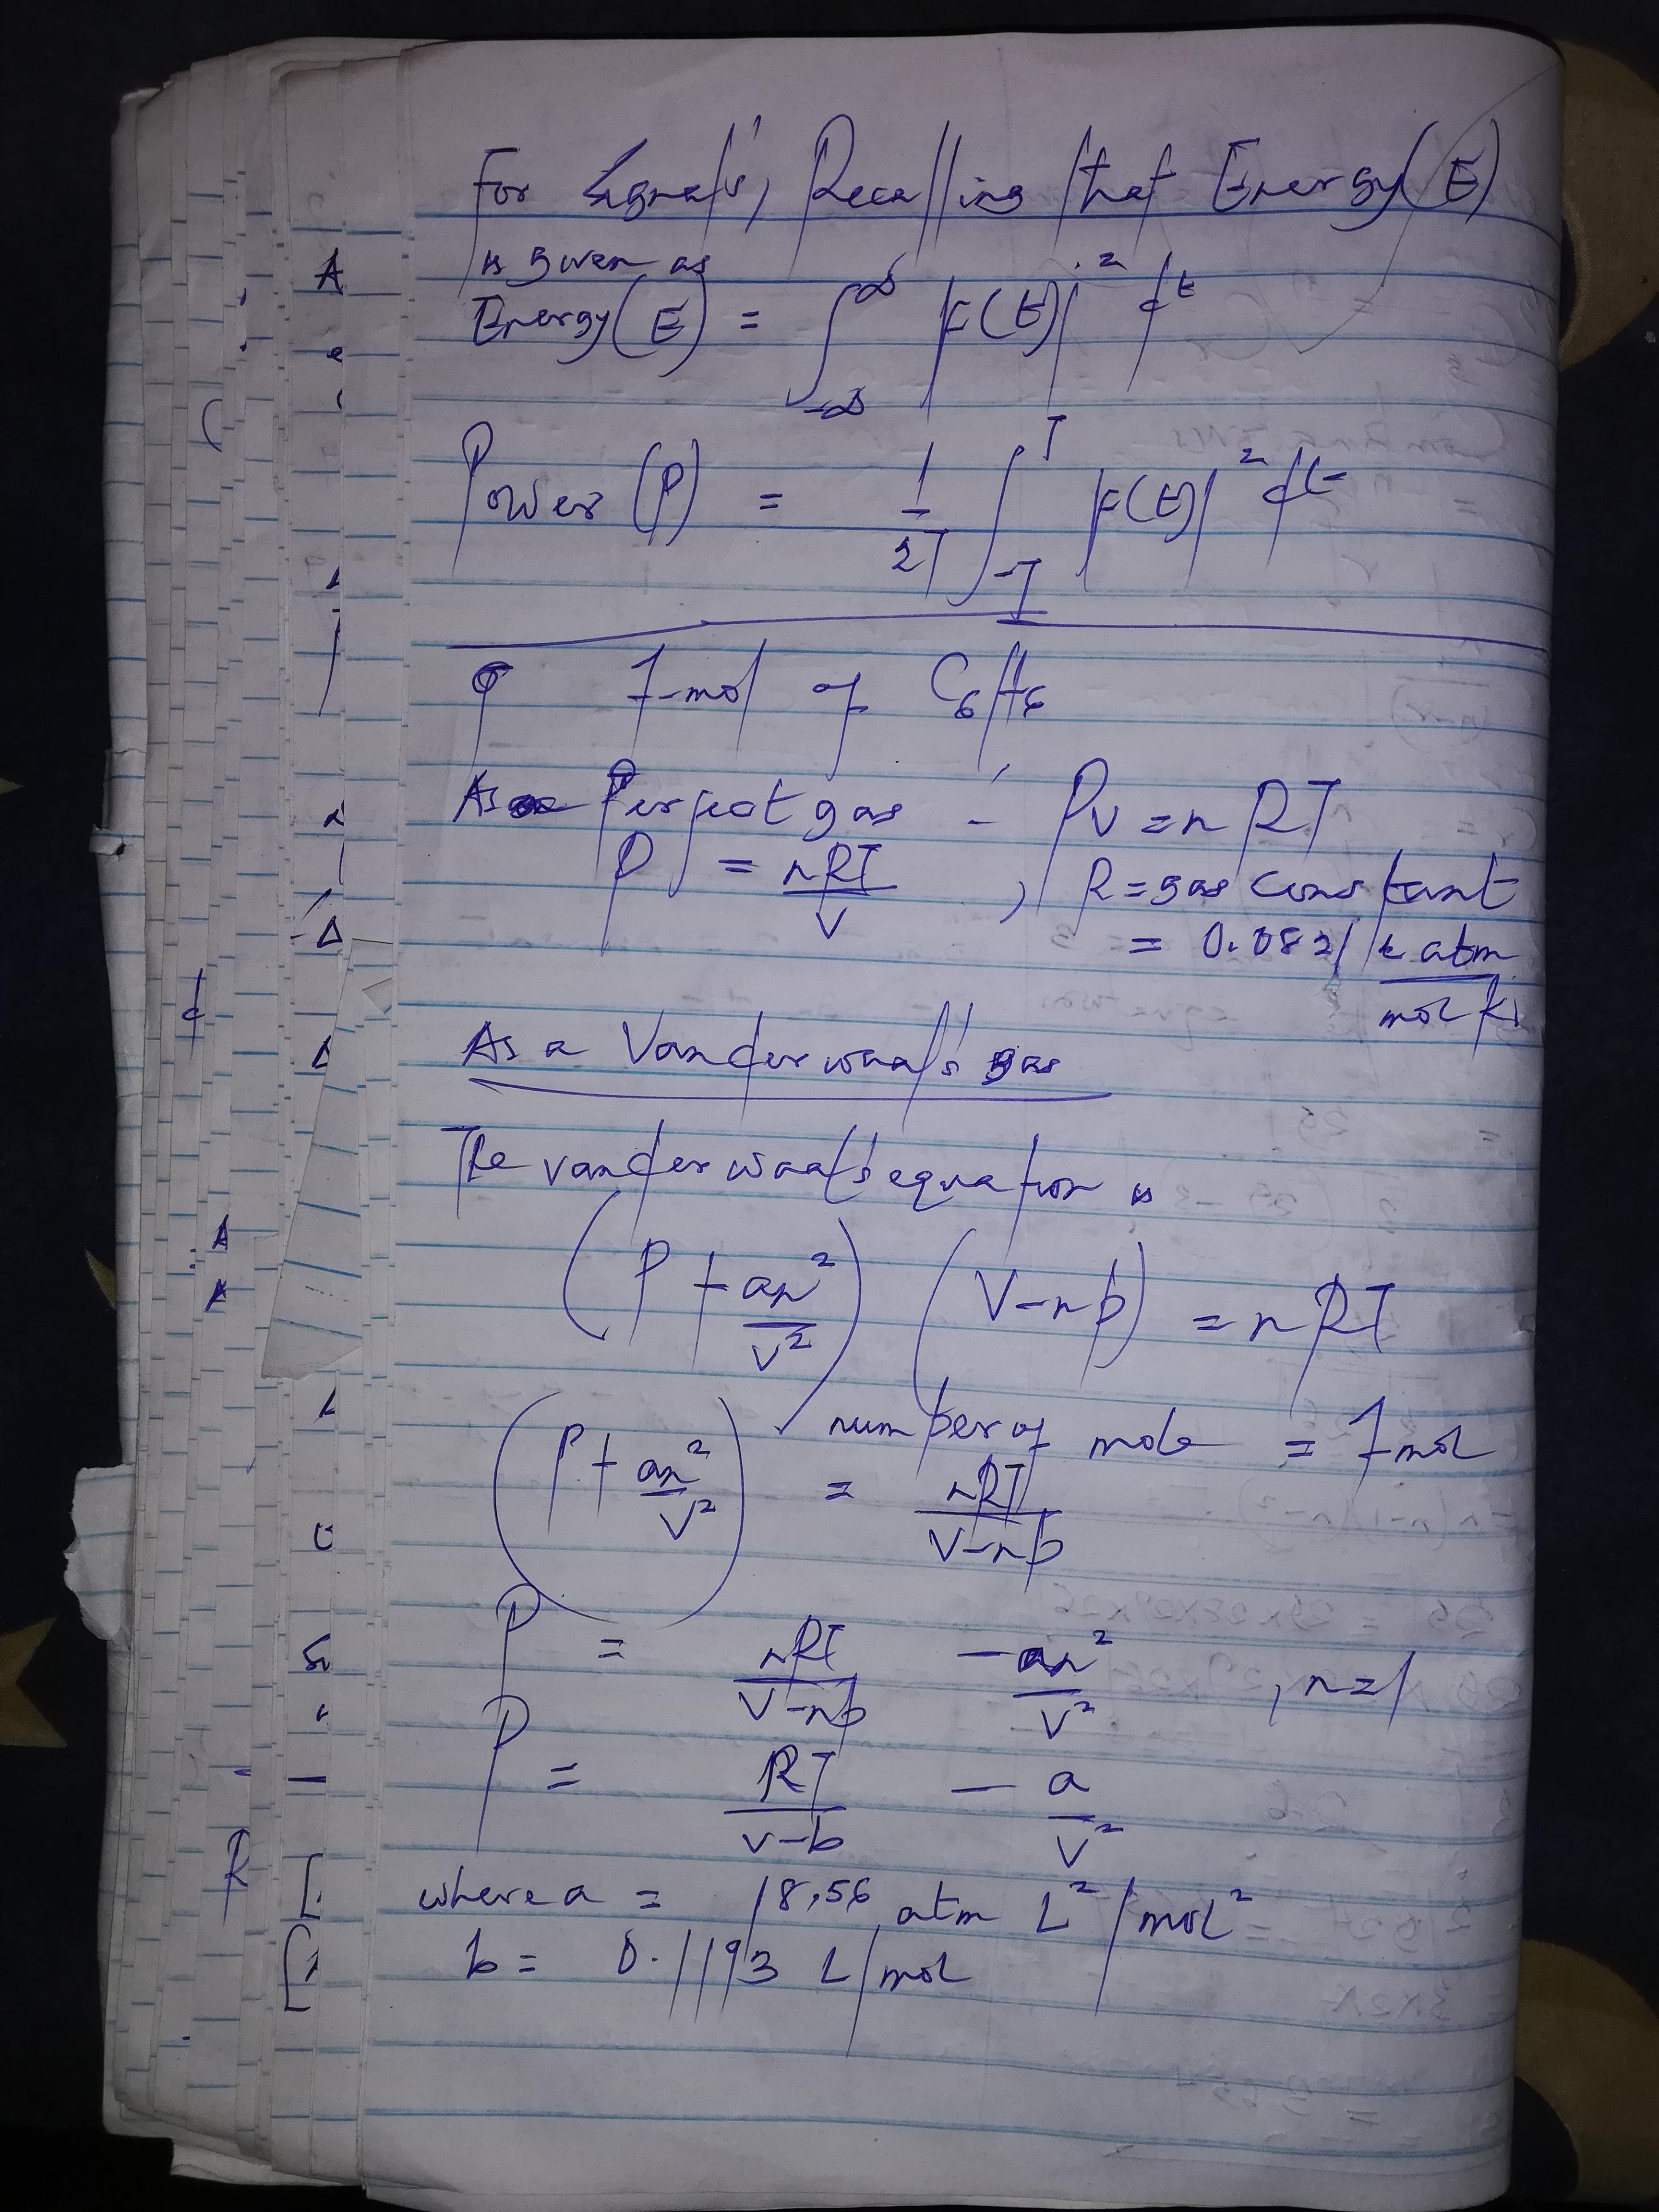 For Signals, Recalling that Energy(E)
is given as
Energy(E) = ∫_{-∞}^{∞} |F(t)|² dt
Power(P) = 1/2T ∫_{-T}^{T} |F(t)|² dt
1-mol of C₆H₆
As Perfect gas - PV = nRT
P = nRT/V , R = gas constant
= 0.0821 L atm/mol K
As a Vander waal's gas
The vander waal's equation is
(P + an²/V²) (V-nb) = nRT
number of mole = 1 mol
(P + an²/V²) = nRT/V-nb
P = nRT/V-nb - an²/V² , n=1
P = RT/V-b - a/V²
where a = 18.56 atm L²/mol²
b = 0.1193 L/mol